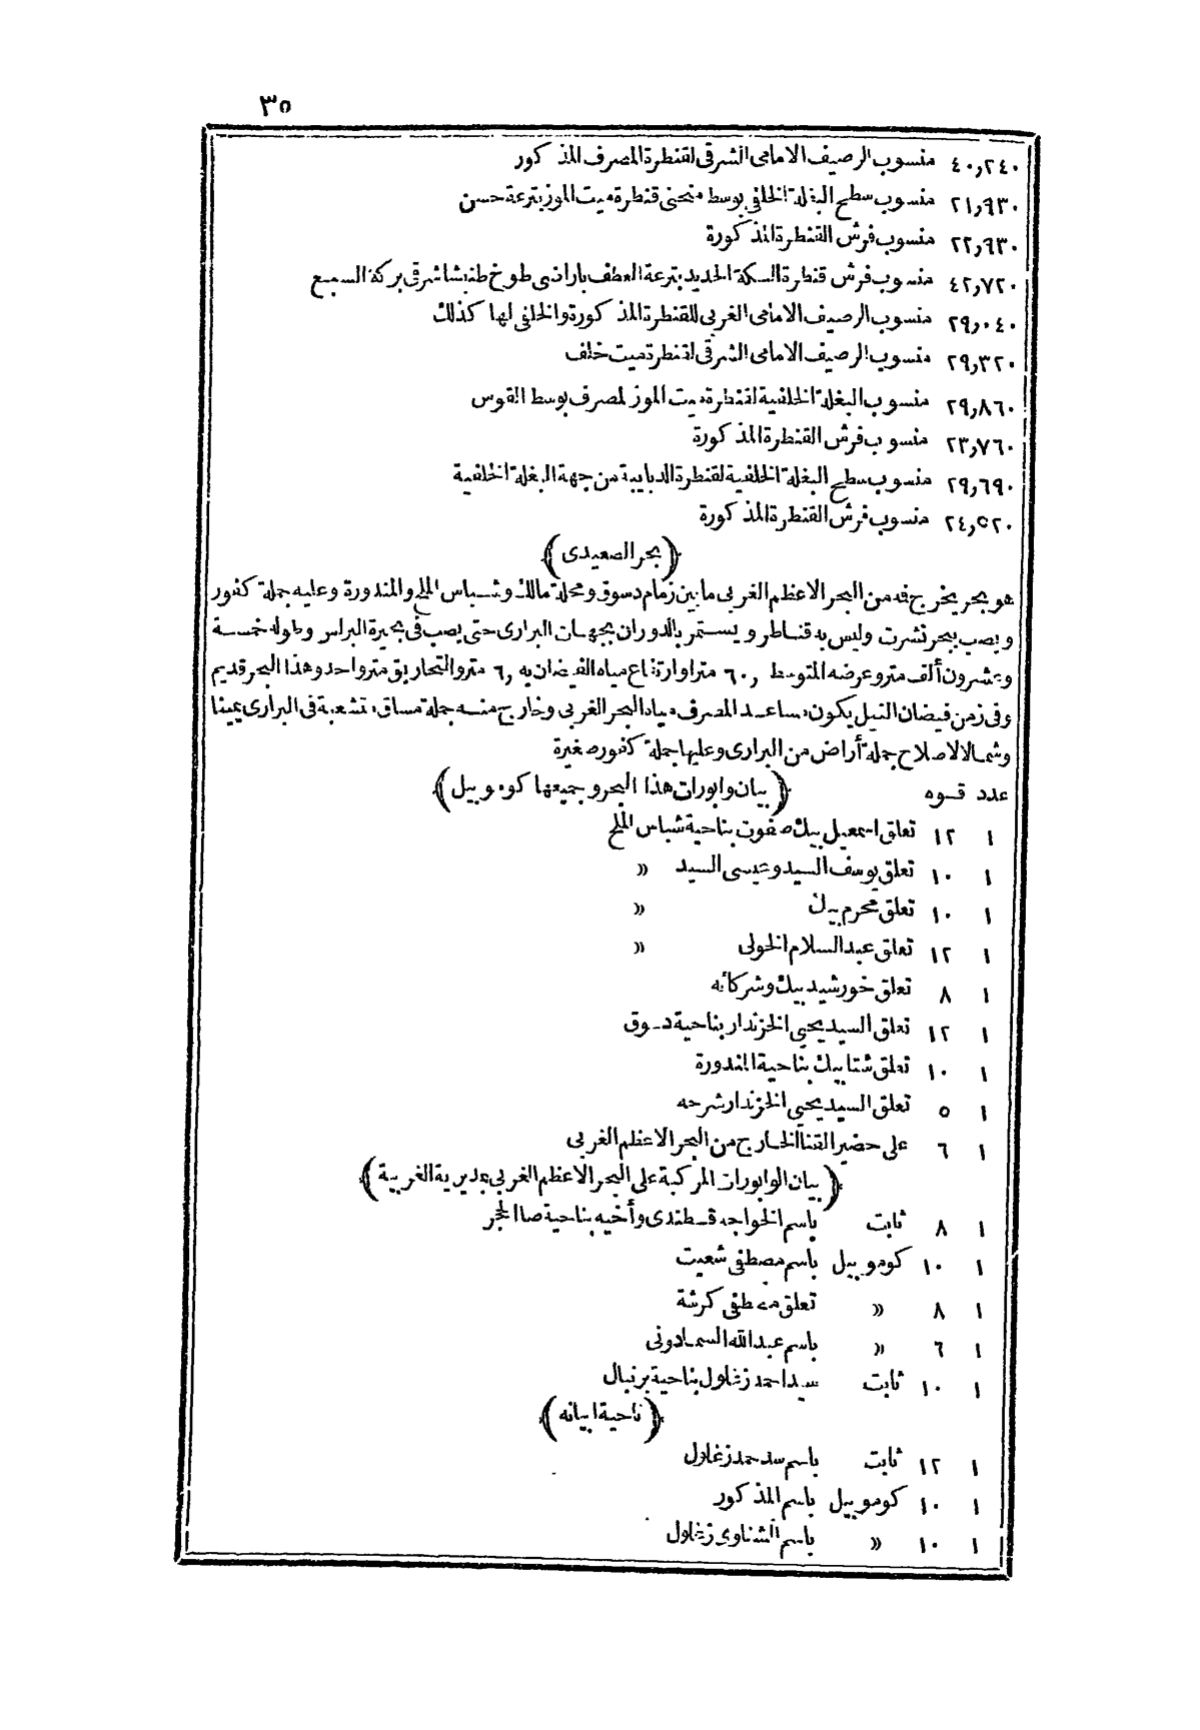 ٣٥
٤٠,٢٤٠ منسوب الرصيف الامامى الشرقى لقنطرة المصرف المذكور
٢١,٩٣٠ منسوب سطح البغلة الخلفى بوسط منحنى قنطرة ميت الموز بترعة حسن
٢٢,٦٣٠ منسوب فرش القنطرة المذكورة
٤٢,٧٢٠ منسوب فرش قنطرة السكة الحديد بترعة العطف باراضى طوخ طنبشا شرقى بركة السبع
٢٩,٠٤٠ منسوب الرصيف الامامى الغربى للقنطرة المذكورة والخلفى لها كذلك
٢٩,٣٢٠ منسوب الرصيف الامامى الشرقى لقنطرة ميت خلف
٢٩,٨٦٠ منسوب البغلة الخلفية لقنطرة ميت الموز لمصرف بوسط القوس
٢٣,٧٦٠ منسوب فرش القنطرة المذكورة
٢٩,٦٩٠ منسوب سطح البغلة الخلفية لقنطرة الدبايبة من جهة البغلة الخلفية
٢٤,٥٢٠ منسوب فرش القنطرة المذكورة
﴿بحر الصعيدى﴾
هو بحر يخرج فه من البحر الاعظم الغربى ما بين زمام دسوق ومحلة مالك وشباس الملح والمندورة وعليه جملة كفور
ويصب ببحر نشرت وليس به قناطر ويستمر بالدوران بجهات البرارى حتى يصب فى بحيرة البراس وطوله خمسة
وعشرون ألف متر وعرضه المتوسط ٦٠, مترا وارتفاع مياه الفيضان به ٦, متر والتحاريق متر واحد وهذا البحر قديم
وفى زمن فيضان النيل يكون مساعد المصرف مياه البحر الغربى وخارج منه جملة مساقى متشعبة فى البرارى يمينا
وشمالا لاصلاح جملة أراض من البرارى وعليها جملة كفور صغيرة
عدد قوه ﴿بيان وابورات هذا البحر وجميعها كوموبيل﴾
١ ١٢ تعلق اسمعيل بيك صفوت بناحية شباس الملح
١ ١٠ تعلق يوسف السيد وعيسى السيد »
١ ١٠ تعلق محرم بيك »
١ ١٢ تعلق عبد السلام الخولى »
١ ٨ تعلق خورشيد بيك وشركائه
١ ١٢ تعلق السيد يحيى الخزندار بناحية دسوق
١ ١٠ تعلق شتا بيك بناحية المندورة
١ ٥ تعلق السيد يحيى الخزندار شرحه
١ ٦ على حضير القنا الخارج من البحر الاعظم الغربى
﴿بيان الوابورات المركبة على البحر الاعظم الغربى بمديرية الغربية﴾
١ ٨ ثابت باسم الخواجه قسطندى وأخيه بناحية صا الحجر
١ ١٠ كوموبيل باسم مصطفى شعيت
١ ٨ » تعلق مصطفى كرشة
١ ٦ » باسم عبد الله السمادونى
١ ١٠ ثابت سيد احمد زغلول بناحية برنبال
﴿ناحية ابيانه﴾
١ ١٢ ثابت باسم سيد حمد زغلول
١ ١٠ كوموبيل باسم المذكور
١ ١٠ » باسم الشناوى زغلول